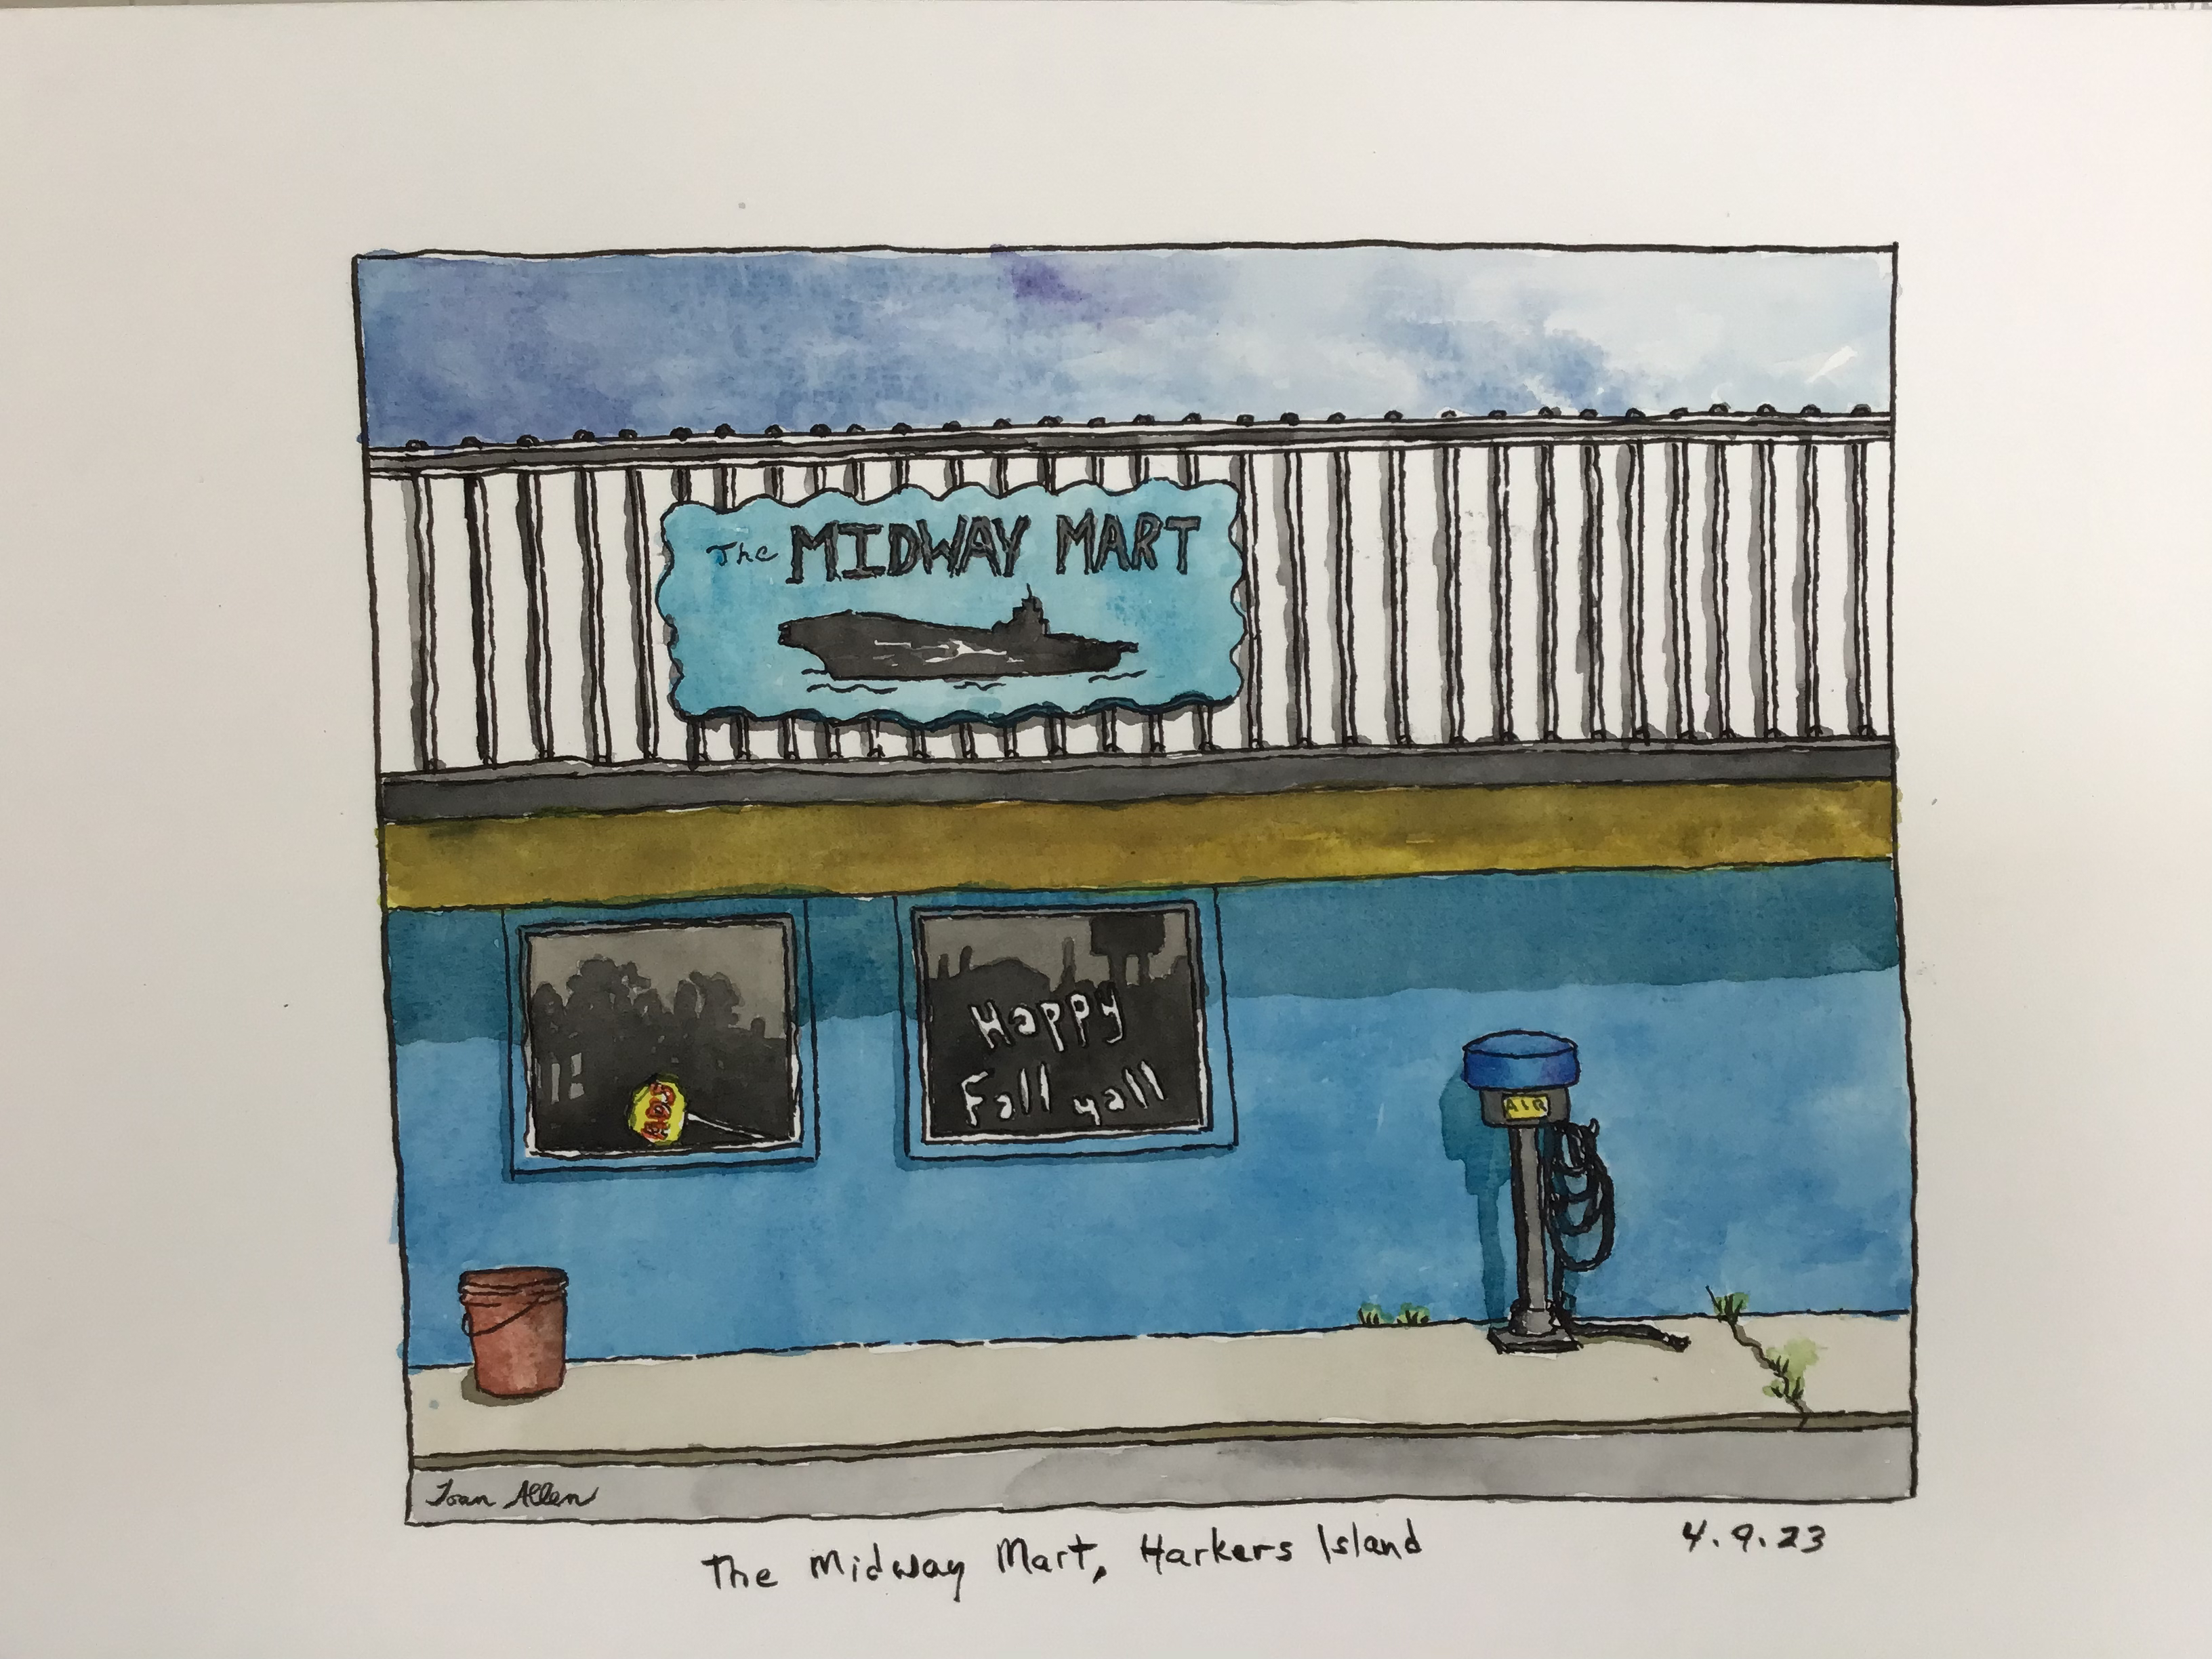 The MIDWAY MART
Happy
Fall yall
AIR
Joan Allen
The Midway Mart, Harkers Island
4.9.23